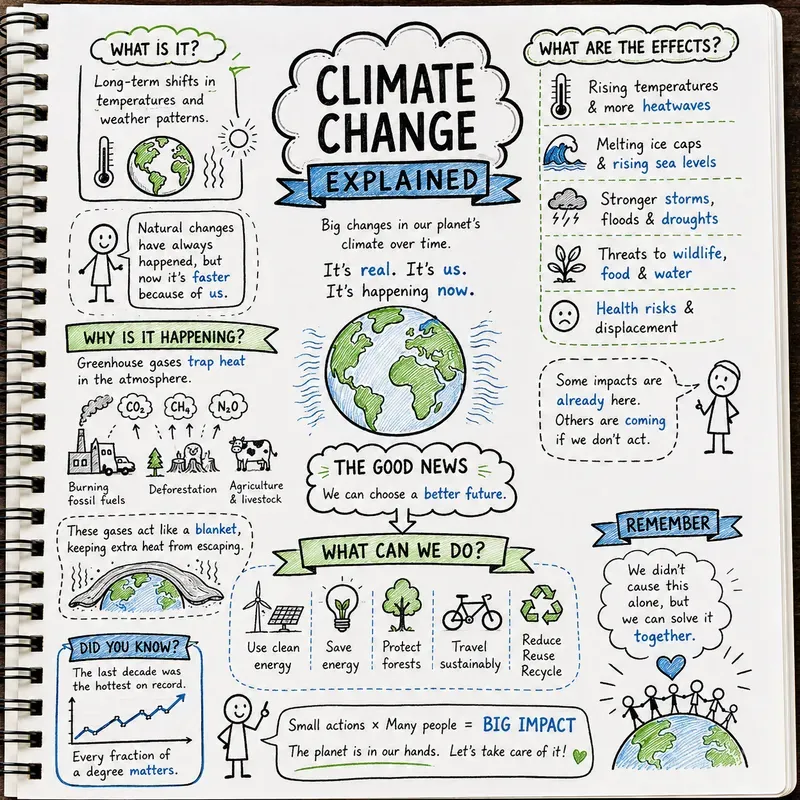 CLIMATE
CHANGE
EXPLAINED
Big changes in our planet's
climate over time.
It's real. It's us.
It's happening now.
WHAT IS IT?
Long-term shifts in
temperatures and
weather patterns.
Natural changes
have always
happened, but
now it's faster
because of us.
WHY IS IT HAPPENING?
Greenhouse gases trap heat
in the atmosphere.
CO₂
CH₄
N₂O
Burning
fossil fuels
Deforestation
Agriculture
& livestock
These gases act like a blanket,
keeping extra heat from escaping.
DID YOU KNOW?
The last decade was
the hottest on record.
Every fraction of
a degree matters.
THE GOOD NEWS
We can choose a better future.
WHAT CAN WE DO?
Use clean
energy
Save
energy
Protect
forests
Travel
sustainably
Reduce
Reuse
Recycle
Small actions × Many people = BIG IMPACT
The planet is in our hands. Let's take care of it!
WHAT ARE THE EFFECTS?
Rising temperatures
& more heatwaves
Melting ice caps
& rising sea levels
Stronger storms,
floods & droughts
Threats to wildlife,
food & water
Health risks &
displacement
Some impacts are
already here.
Others are coming
if we don't act.
REMEMBER
We didn't
cause this
alone, but
we can solve it
together.